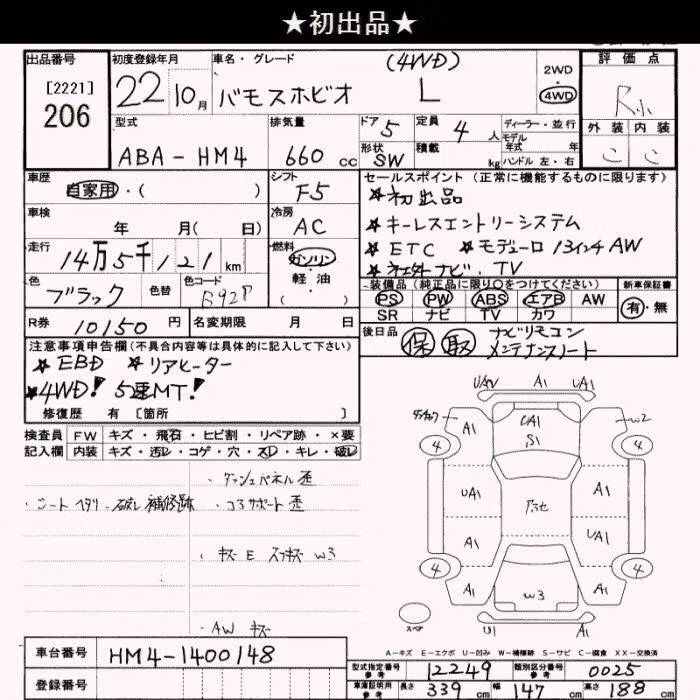 ★初出品★
出品番号
[2221]
206
初度登録年月
22 10月
車名・グレード
(4WD)
バモスホビオ L
2WD
4WD
評価点
R小
外装 内装
C C
型式
ABA-HM4
排気量
660 cc
ドア 5
形状 SW
定員 4 人
積載 kg
ディーラー・並行
モデル
年式 年
ハンドル 左・右
車歴
自家用・( )
シフト
F5
車検
年 月( 日)
冷房
AC
走行
14万5千121 km
燃料
ガソリン・
軽油・
( )
色
ブラック
色替
色コード
B92P
R券
10150 円
名変期限 月 日
セールスポイント (正常に機能するものに限ります)
★初出品
★キーレスエントリーシステム
★ETC ★モデューロ13インチAW
★社外ナビ.TV
装備品(純正品に限り○をつけてください)
PS PW ABS エアB AW
SR ナビ TV カワ
新車保証書
有・無
後日品
保 取 ナビリモコン
メンテナンスノート
注意事項申告欄(不具合内容等は具体的に記入して下さい)
★EBD ★リアヒーター
★4WD! 5速MT!
修復歴 有 [箇所 ]
検査員
記入欄
FW キズ・飛石・ヒビ割・リペア跡・×要
内装 キズ・汚レ・コゲ・穴・スレ・キレ・破レ
・ダッシュパネル歪
・シートヘタリ・破レ補修跡 ・コアサポート歪
・キズ E スリキズ W3
・AW キズ
UAV A1 UA1
A1 UA1 S1 W2
4 4
UA1 A1
A1 UA1
4 4
A1 W3 A1
スペア
U1 A1
A-キズ E-エクボ U-凹み W-補修跡 S-サビ C-腐食 XX-交換済
車台番号
HM4-1400148
登録番号
型式指定番号
参考
12249
類別区分番号
参考
0025
車庫証明用
参考
長さ 339 cm 幅 147 cm 高さ 188 cm